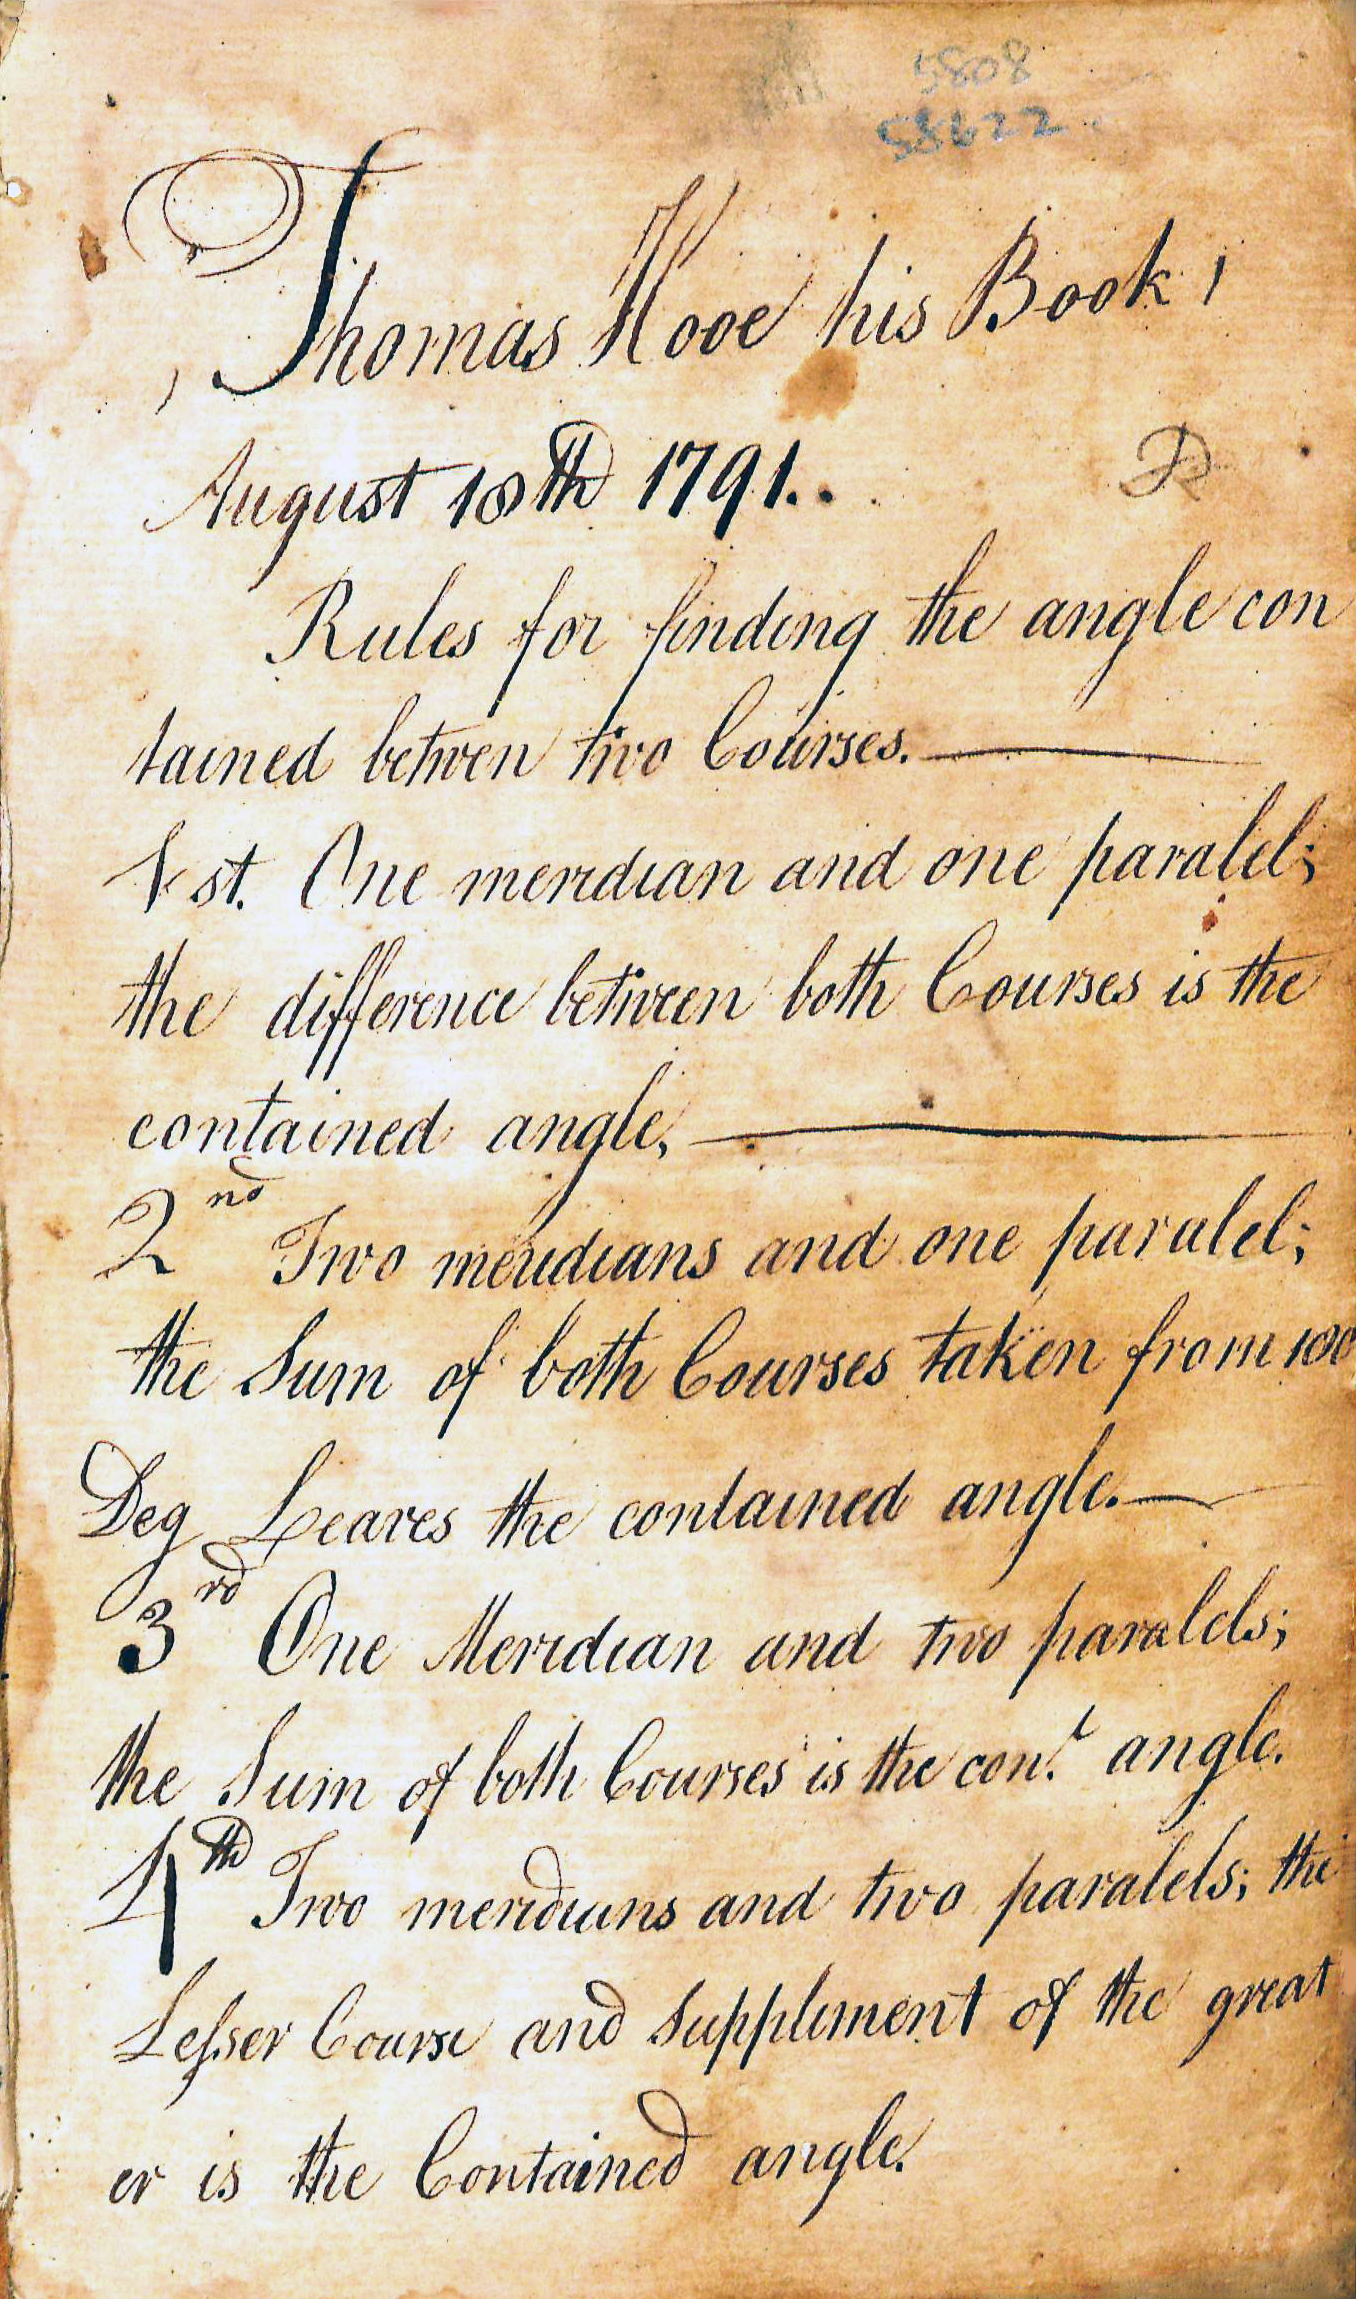 5808
58622
Thomas Hooe his Book
August 18th 1791..
Rules for finding the angle con
tained betwen two Courses.
1st. One meridian and one paralel;
the difference between both Courses is the
contained angle.
2nd Two meridians and one paralel;
the Sum of both Courses taken from 180
Deg Leaves the contained angle.
3rd One Meridian and two paralels;
the Sum of both Courses is the con.t angle.
4th Two meridians and two paralels; the
Lesser Course and Suppliment of the great
er is the Contained angle.